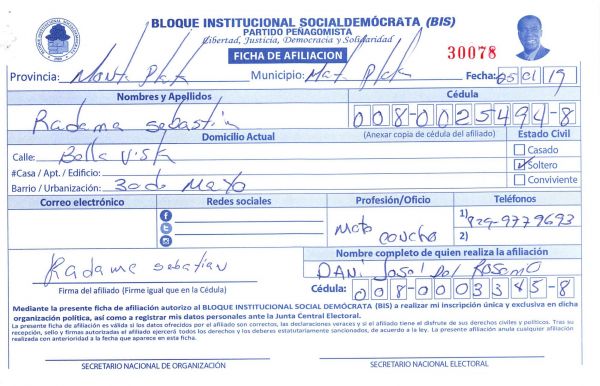 BLOQUE INSTITUCIONAL SOCIALDEMÓCRATA (BIS)
PARTIDO PEÑAGOMISTA
Libertad, Justicia, Democracia y Solidaridad
FICHA DE AFILIACION
30078
Provincia: Monte Plata Municipio: Mat. Plata Fecha: 05 01 19
Nombres y Apellidos Cédula
Radame Sebastian 008-0025494-8
Domicilio Actual (Anexar copia de cédula del afiliado) Estado Civil
Calle: Bella Vista Casado
#Casa / Apt. / Edificio: Soltero
Barrio / Urbanización: 30 de Mayo Conviviente
Correo electrónico Redes sociales Profesión/Oficio Teléfonos
Moto concho 1) 829-9779693
2)
Radame Sebastian Nombre completo de quien realiza la afiliación
DANi José Del Rosario
Firma del afiliado (Firme igual que en la Cédula) Cédula: 008-0003385-8
Mediante la presente ficha de afiliación autorizo al BLOQUE INSTITUCIONAL SOCIAL DEMÓCRATA (BIS) a realizar mi inscripción única y exclusiva en dicha
organización política, así como a registrar mis datos personales ante la Junta Central Electoral.
La presente ficha de afiliación es válida si los datos ofrecidos por el afiliado son correctos, las declaraciones veraces y si el afiliado tiene el disfrute de sus derechos civiles y políticos. Tras su
recepción, sello y firmas autorizadas el afiliado ejercerá todos los derechos y los deberes estatutariamente sancionados, de acuerdo a la ley. La presente afiliación anula cualquier afiliación
realizada con anterioridad a la fecha que aparece en esta ficha.
SECRETARIO NACIONAL DE ORGANIZACIÓN SECRETARIO NACIONAL ELECTORAL